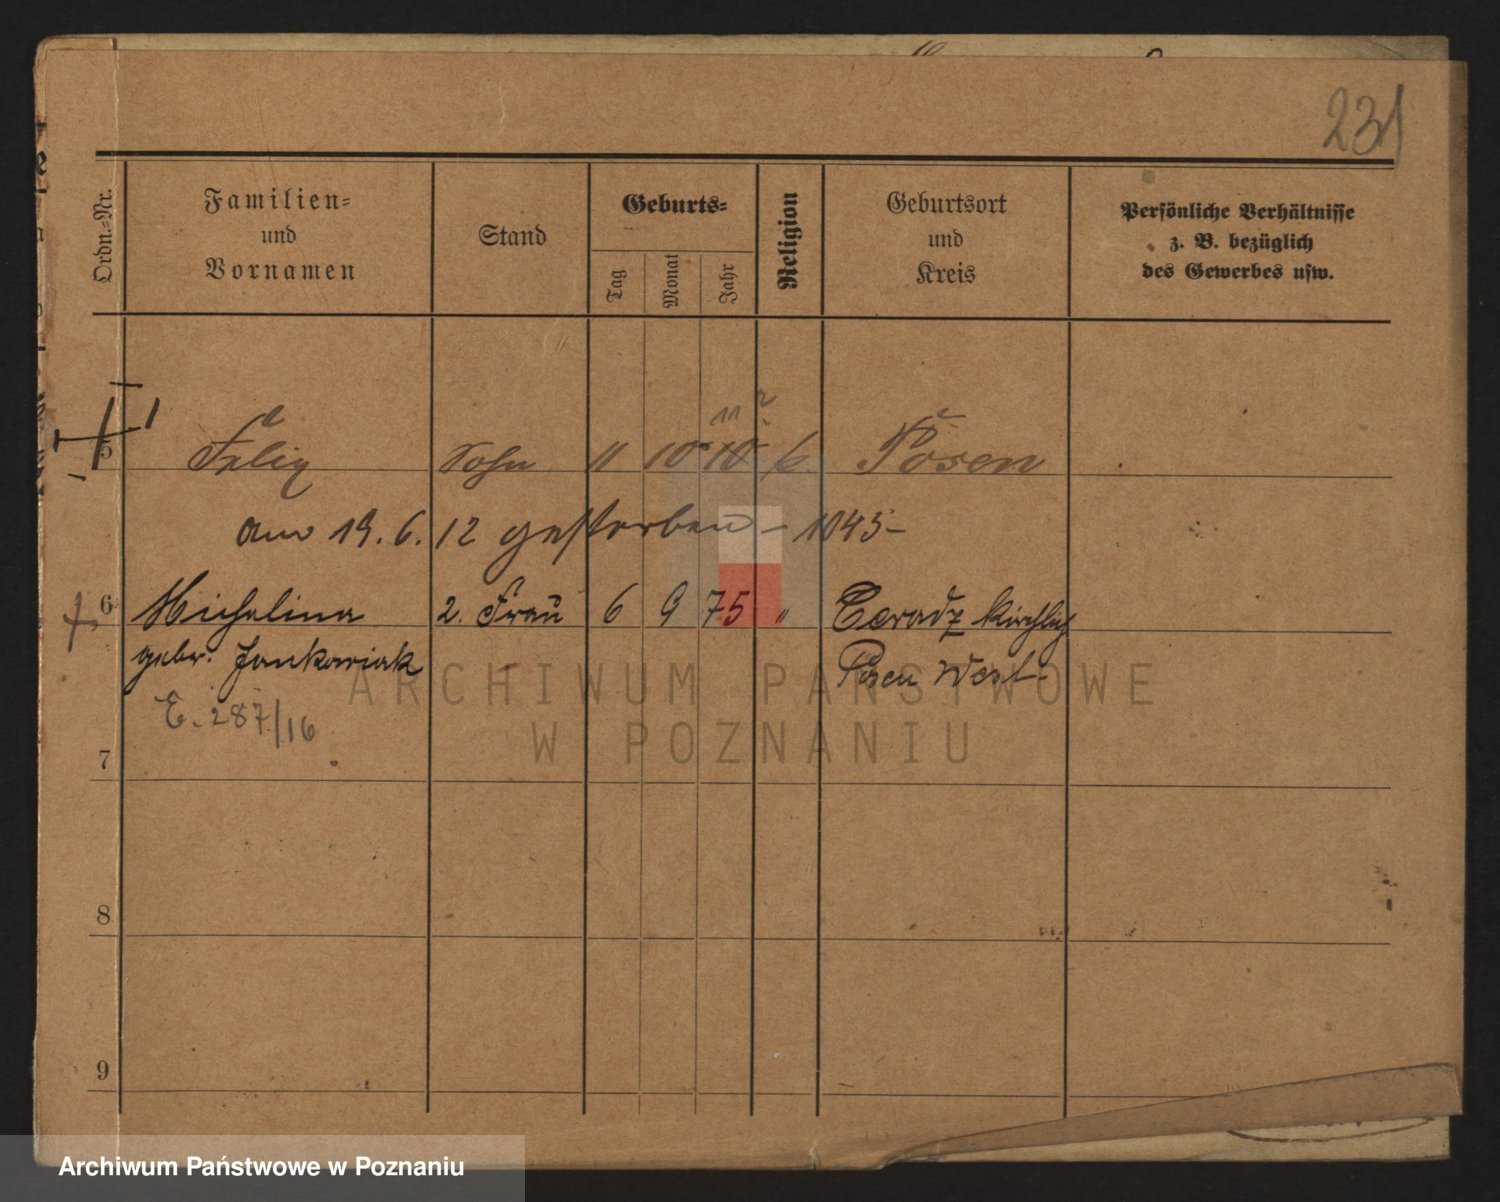 231
Ordn.-Nr.
Familien-
und
Vornamen
Stand
Geburts-
Tag
Monat
Jahr
Religion
Geburtsort
und
Kreis
Persönliche Verhältnisse
z. B. bezüglich
des Gewerbes usw.
11
5 Felix Sohn 11 10 10 k. Posen
am 19. 6. 12 gestorben - 1043 -
6 Michalina 2. Frau 6 9 75 " Ceradz kirchlich
gebr. Jankowiak Posen West.
E. 287/16
7
8
9
ARCHIWUM PAŃSTWOWE
W POZNANIU
Archiwum Państwowe w Poznaniu